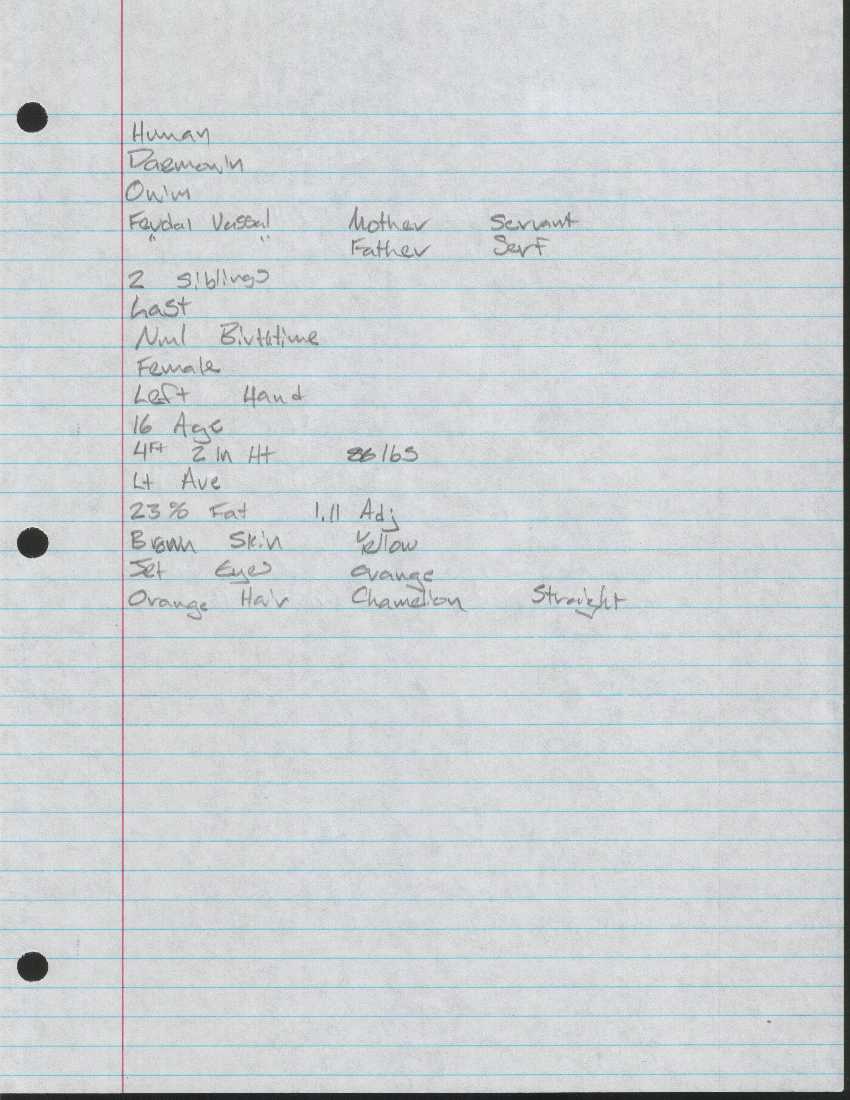 Human
Daemonin
Onim
Feudal Vassal Mother Servant
" " Father Serf
2 Siblings
Last
Nml Birthtime
Female
Left Hand
16 Age
4Ft 2 in Ht 86 lbs
Lt Ave
23% Fat 1.11 Adj
Brown Skin Yellow
Jet Eyes Orange
Orange Hair Chamelion Straight